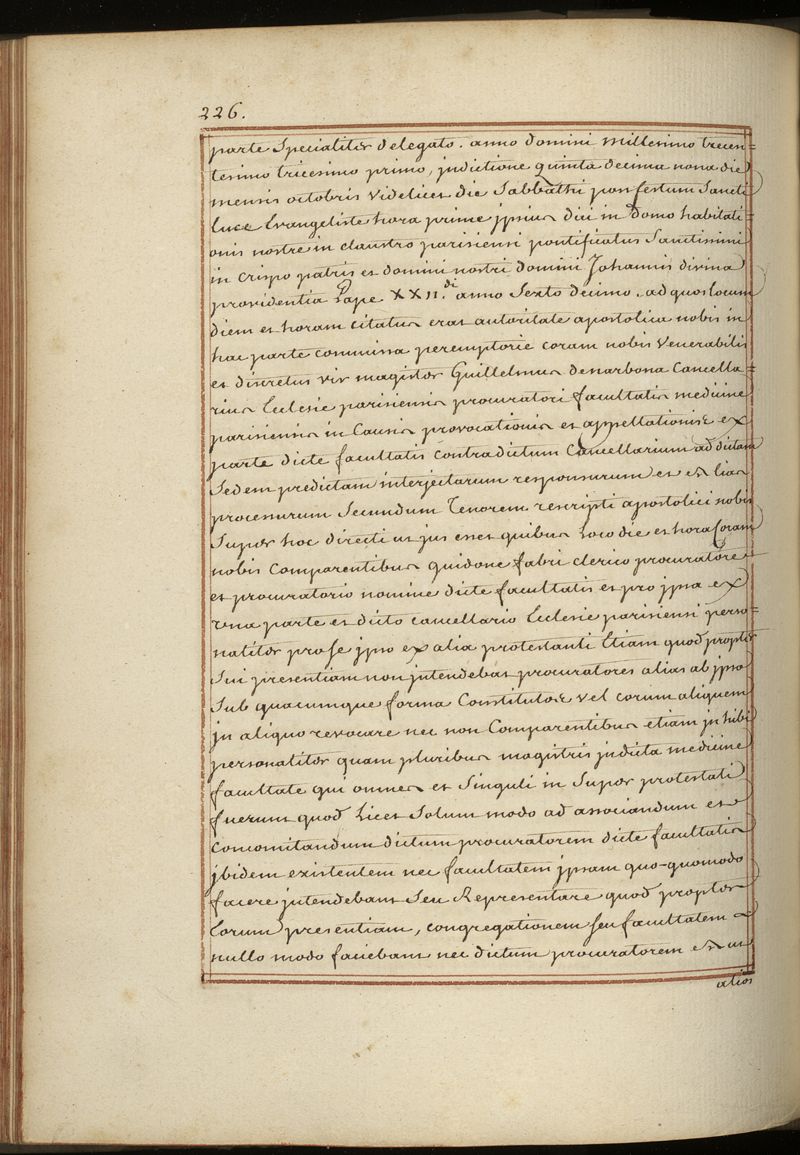 226.
parte Specialiter delegato. anno domini millesimo trecen
tesimo tricesimo primo, jndictione quinta decima nona die
mensis octobris videlicet die Sabbathi post festum Sancti
Luce Evangeliste hora prime jpsius diei in domo habitati=
onis nostre in claustro parisiensi pontificatus Sanctissimi
in cristo patris et domini nostri domini Johannis divina
providentia Pape XXII.di anno Sexto decimo. ad quos locum
diem et horam citatus erat autoritate apostolica nobis in
hac parte commissa peremptorie coram nobis Venerabilis
et discretus vir magister Guillelmus denarbona Cancella=
rius Ecclesie parisiensis procuratori facultatis medicine
parisiensis in Causis provocationis et appellationis ex
parte dicte facultatis contra dictum Cancellarium ad dictam
Sedem predictam interjectarum responsurum et
processurum Secundum Tenorem rescripti apostolici nobis
Super hoc directi ut jus esset quibus Loco die et hora Coram
nobis Comparentibus guidone fabri clerico procuratore
et procuratorio nomine dicte facultatis et pro jpsa ex
vna parte et dicto cancellario Ecclesie parisiensi perso=
naliter pro se jpso ex alia protestanti Etiam quod propter
Sui presentiam non jntendebat procuratores alias ab jpso
Sub quacumque forma Constitutos vel eorum aliquem
jn aliquo revocare nec non Comparentibus etiam jnhibi
personaliter quam pluribus magistris jndicta medicine
facultate qui omnes et Singuli in Super protestati
fuerunt quod Licet Solum modo ad associandum et
concomitandum dictum procuratorem dicte facultatis
jbidem existentem nec facultatem jpsam quo-quomodo
facere jntendebant Seu Representare quod propter
Eorum presentiam, congregationem seu facultatem
nullo modo faciebant nec dictum procuratorem
alios